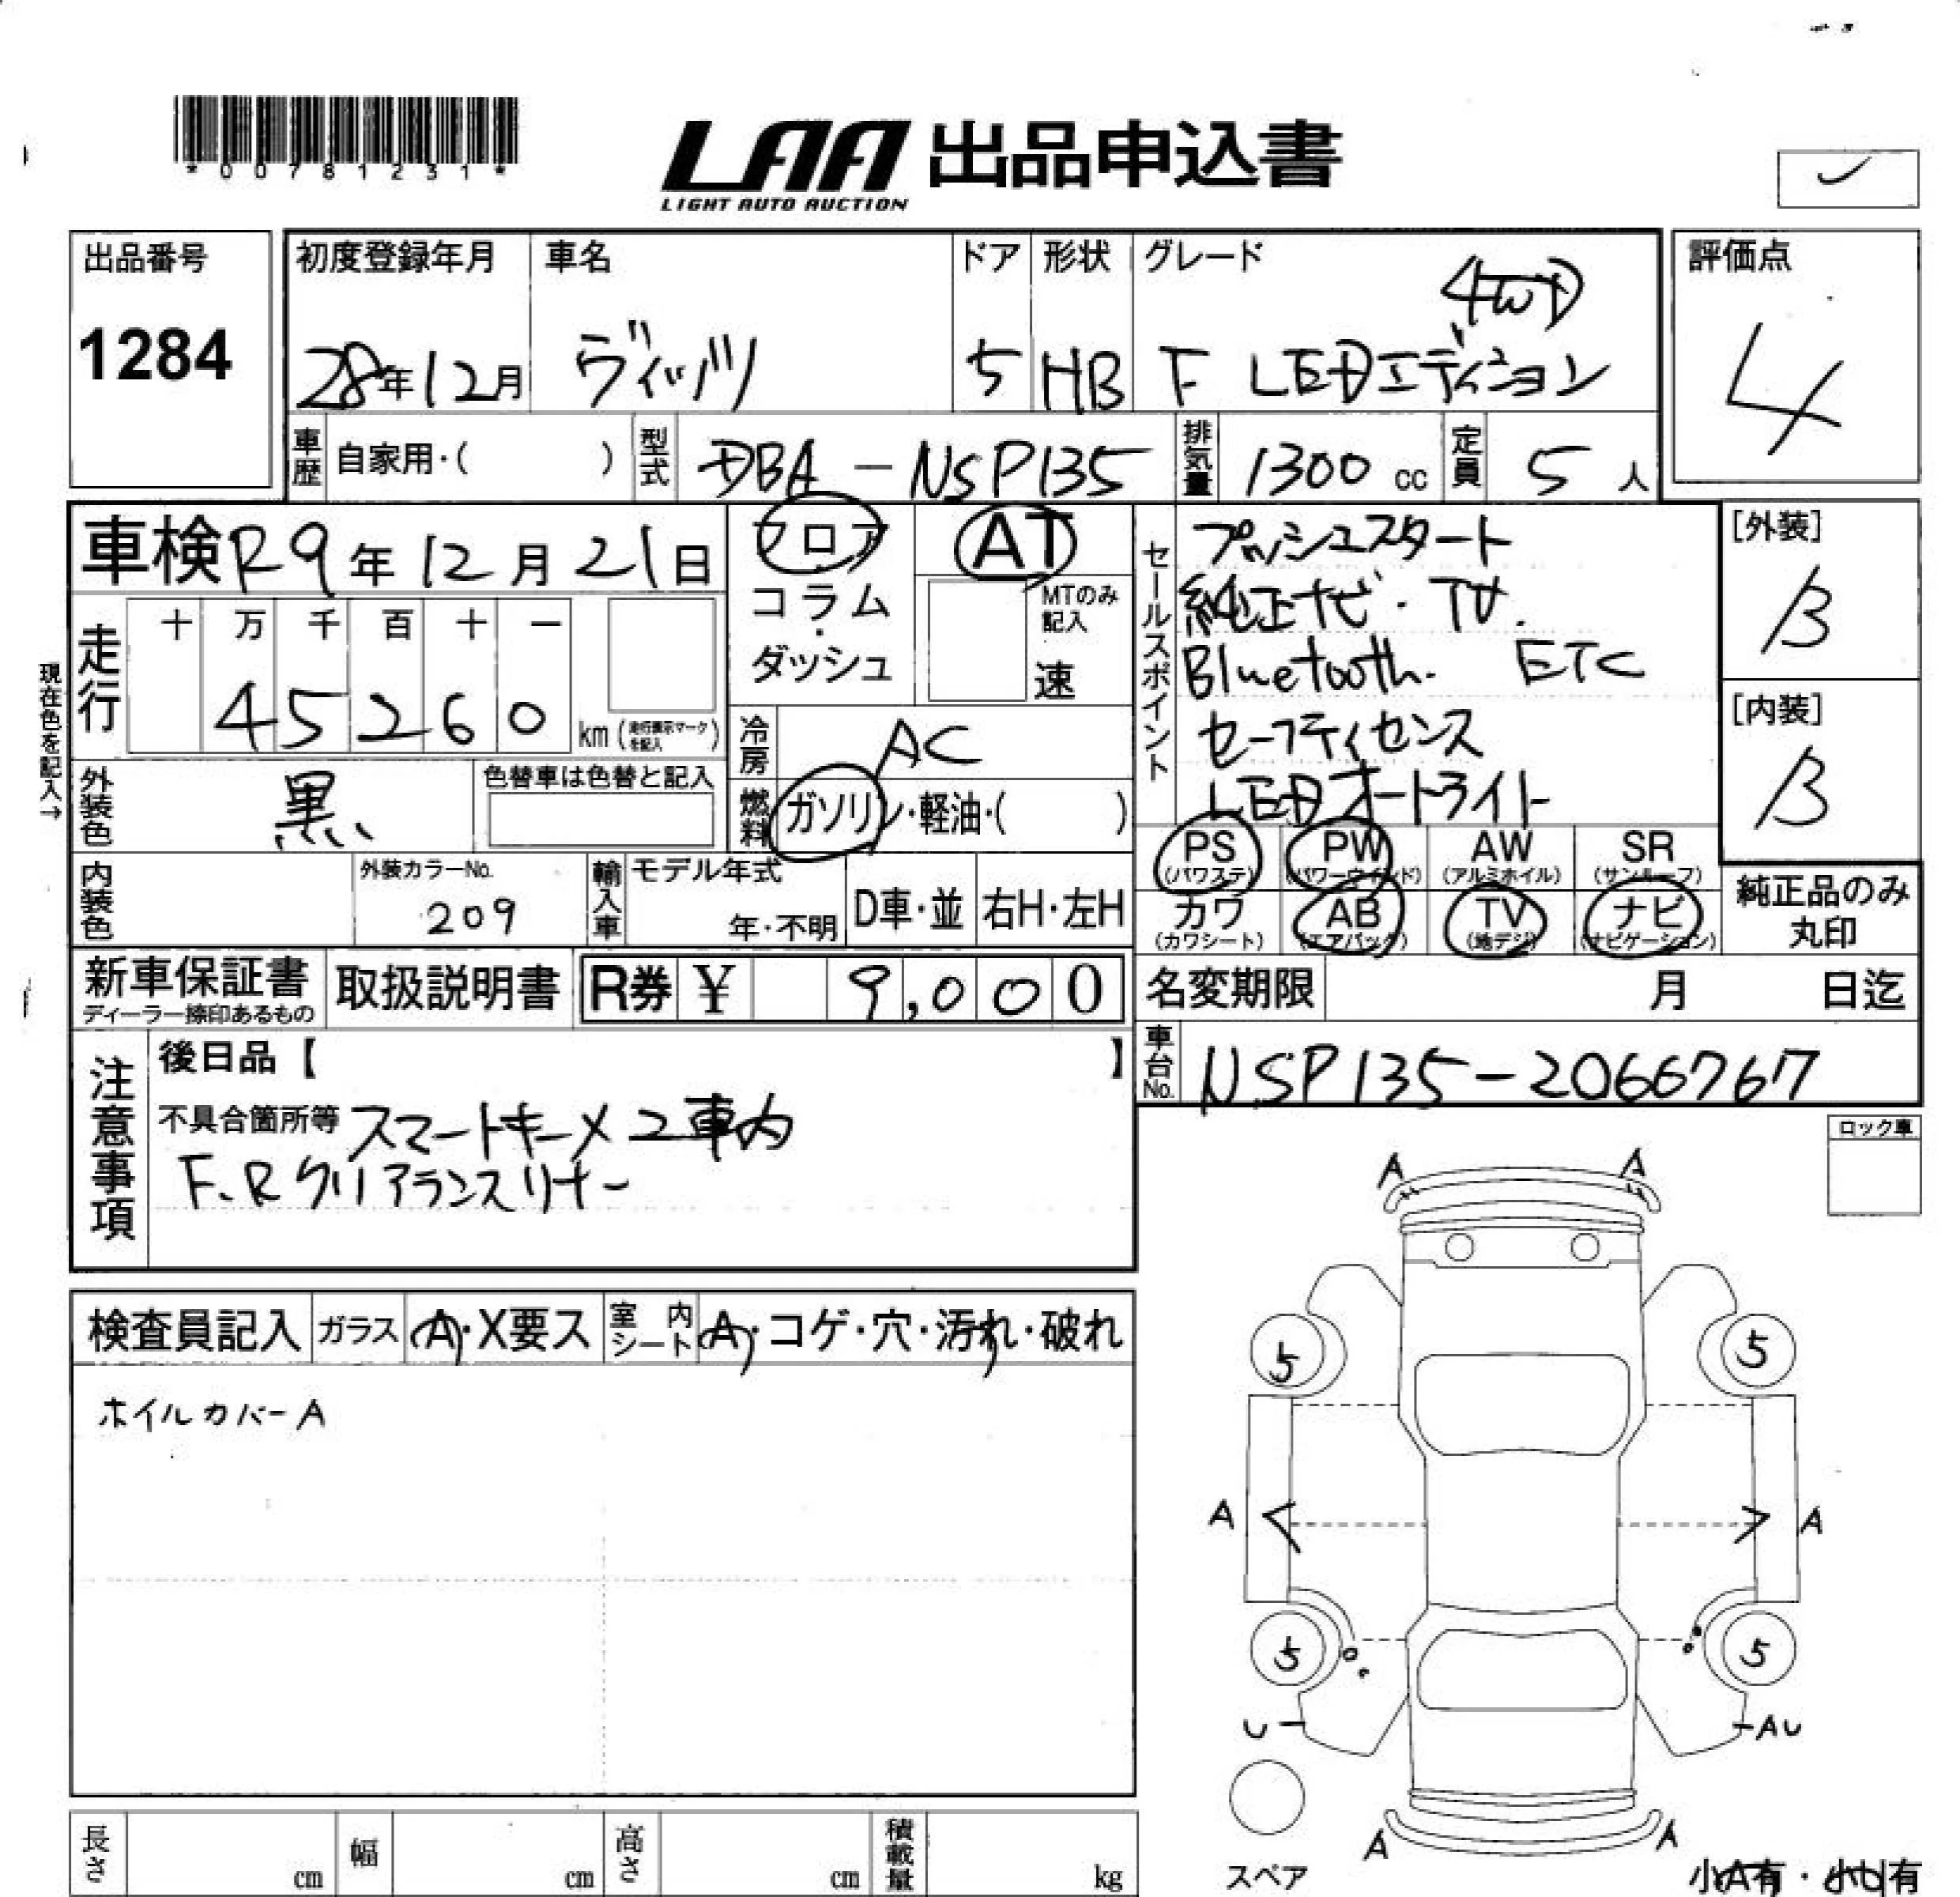 *00781231*
LAA 出品申込書
LIGHT AUTO AUCTION
出品番号
1284
初度登録年月
28年12月
車名
ヴィッツ
ドア
5
形状
HB
グレード
4WD
F LEDエディション
評価点
4
車歴 自家用・( )
型式 DBA-NSP135
排気量 1300 cc
定員 5 人
車検 R9年12月21日
フロア・コラム・ダッシュ
AT
MTのみ記入
速
走行
十 万 千 百 十 一
45260
km (走行表示マークを記入)
現在色を記入→
冷房 AC
外装色 黒
色替車は色替と記入
燃料 ガソリン・軽油・( )
セールスポイント
プッシュスタート
純正ナビ・TV.
Bluetooth. ETC
セーフティセンス
LEDオートライト
[外装]
B
[内装]
B
PS (パワステ) PW (パワーウィンド) AW (アルミホイル) SR (サンルーフ)
カワ (カワシート) AB (エアバック) TV (地デジ) ナビ (ナビゲーション)
純正品のみ
丸印
内装色
外装カラーNo.
209
輸入車
モデル年式
年・不明
D車・並
右H・左H
新車保証書
ディーラー捺印あるもの
取扱説明書
R券 ¥ 9,000
名変期限 月 日迄
車台No. NSP135-2066767
注意事項
後日品【 】
不具合箇所等 スマートキーメコ車内
F、Rクリアランスソナー
ロック車
検査員記入
ガラス A・X要ス
室内シート A・コゲ・穴・汚れ・破れ
ホイルカバーA
A A
5 5
A A
5 5
U AU
A A
スペア
小A有・小U有
長さ cm
幅 cm
高さ cm
積載量 kg